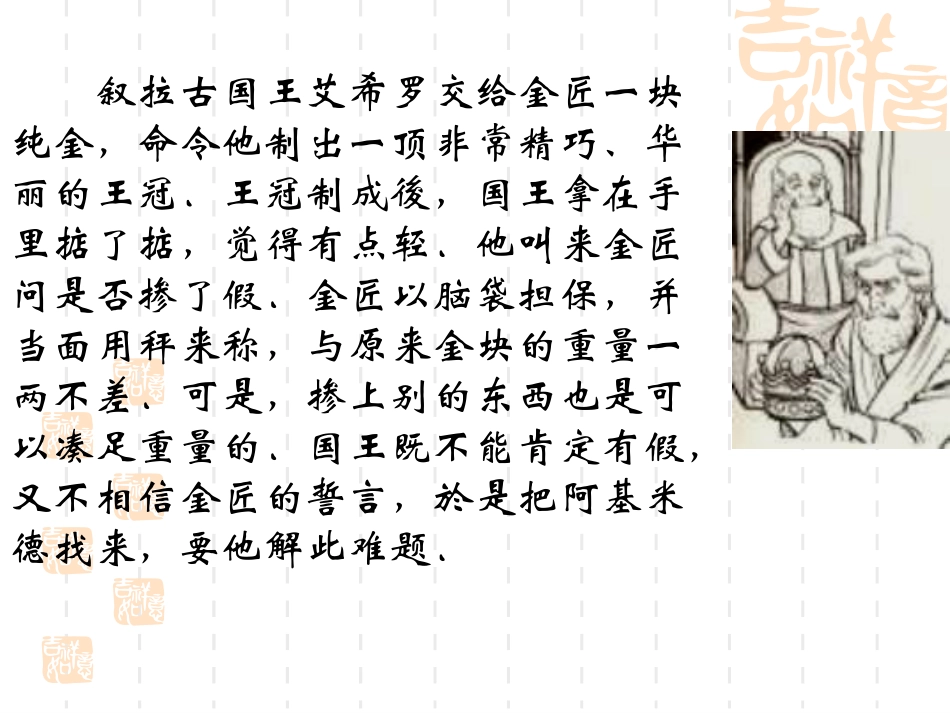 吉祥如意
叙拉古国王艾希罗交给金匠一块
纯金，命令他制出一顶非常精巧、华
丽的王冠．王冠制成後，国王拿在手
里掂了掂，觉得有点轻．他叫来金匠
问是否掺了假．金匠以脑袋担保，并
当面用秤来称，与原来金块的重量一
两不差．可是，掺上别的东西也是可
以凑足重量的．国王既不能肯定有假，
又不相信金匠的誓言，於是把阿基米
德找来，要他解此难题．
吉祥如意
吉祥如意
吉祥如意
吉祥如意
吉祥如意
吉祥如意